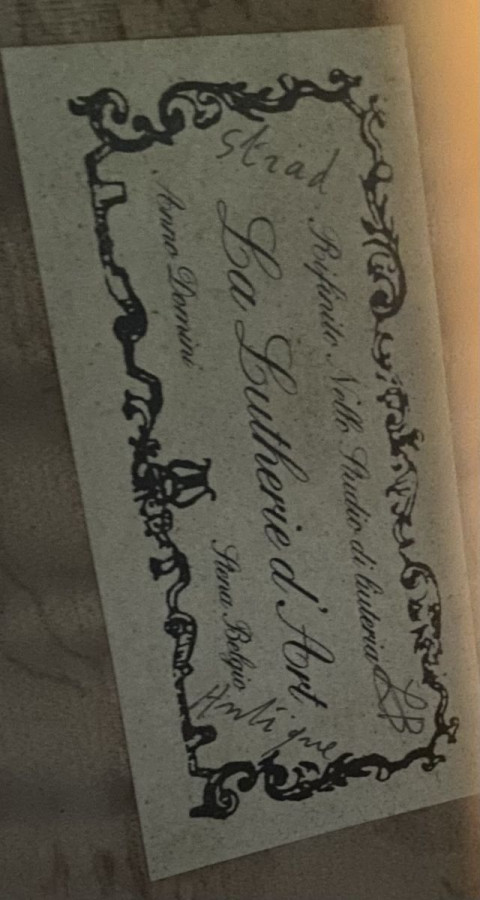 Rifinito Nello Studio di liuteria LB
Strad
La Lutherie d'Art
Anno Domini
Stena Belgio
Antique